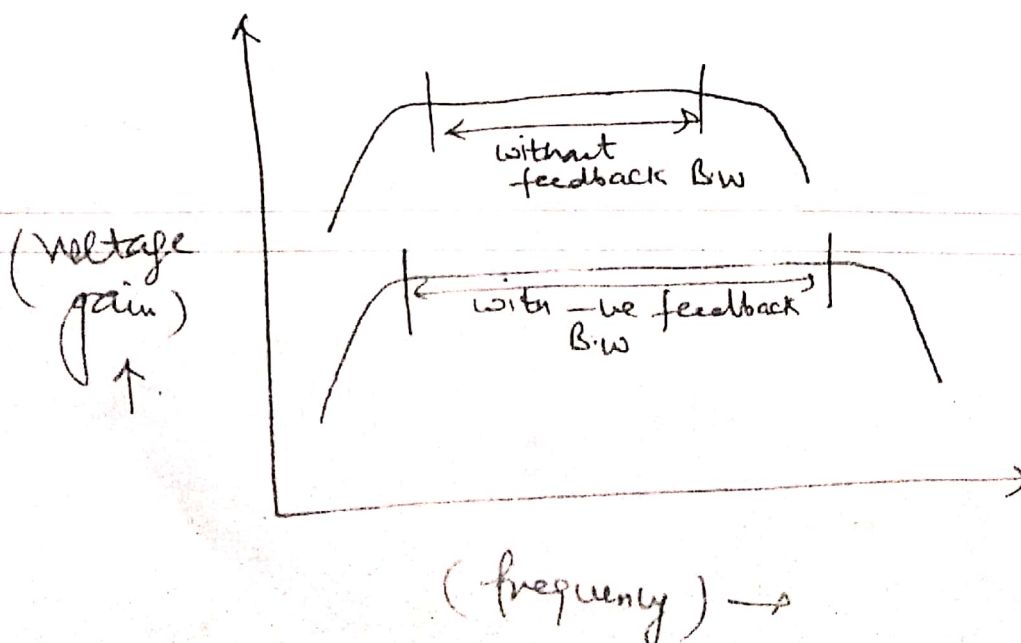 without
feedback B.W
(voltage
gain)
with -ve feedback
B.W
(frequency)